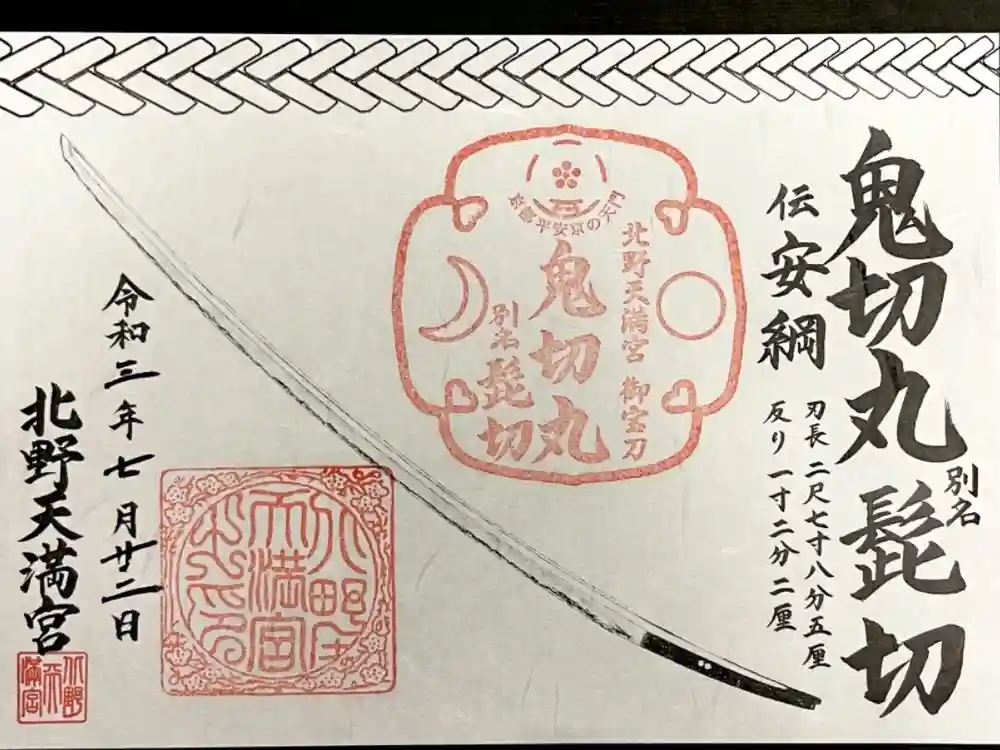 鬼切丸 別名 髭切
伝安綱
刃長 二尺七寸八分五厘
反り 一寸二分二厘
京都平安京の天門
北野天満宮 御宝刀
鬼切丸
別名 髭切
令和三年七月廿二日
北野天満宮
北野天満宮